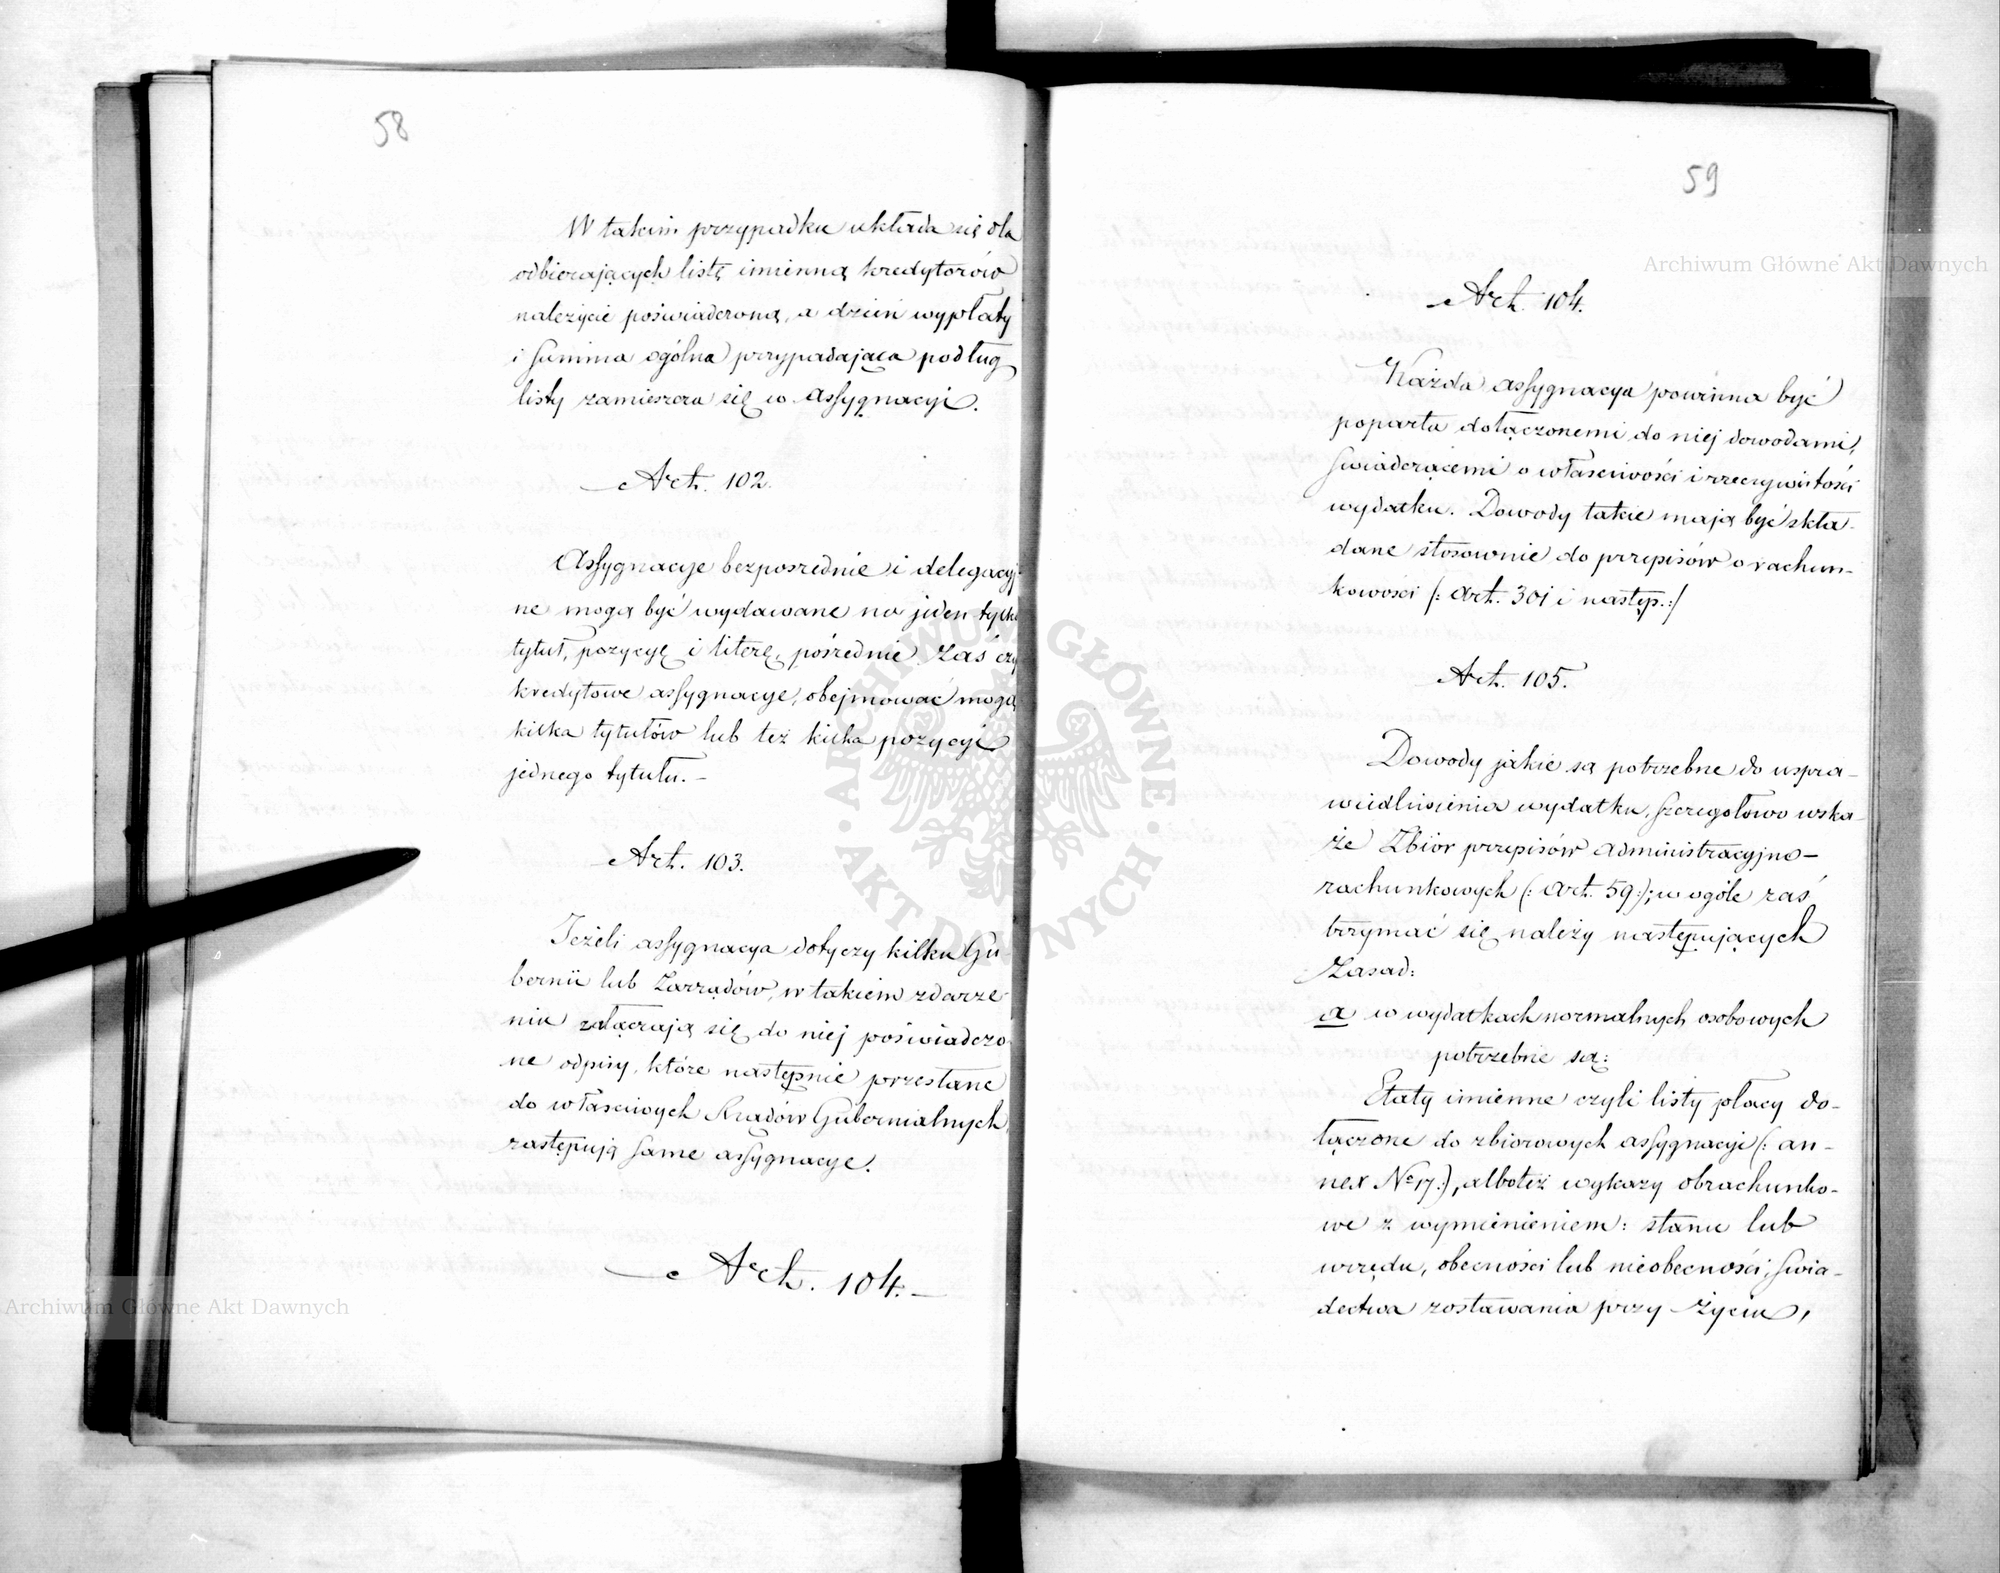 58
W takim przypadku układa się dla
odbierających listę imienną kredytorów
należycie poświadczoną, a dzień wypłaty
i summa ogólna przypadająca podług
listy zamieszcza się w assygnacyi.
Art. 102.
Assygnacye bezpośrednie i delegacyj-
ne mogą być wydawane na jeden tylko
tytuł, pozycyę i literę, pośrednie zaś czy
kredytowe assygnacye, obejmować mogą
kilka tytułów lub też kilka pozycyi
jednego tytułu. –
Art. 103.
Jeżeli assygnacya dotyczy kilku Gu-
bernii lub Zarządów, w takiem zdarze-
niu załączają się do niej poświadczo-
ne odpisy, które następnie przesłane
do właściwych Rządów Gubernialnych,
zastępują same assygnacye.
Art. 104. –
59
Art. 104.
Każda assygnacya powinna być
poparta dołączonemi do niej dowodami,
świadczącemi o właściwości i rzeczywistości
wydatku. Dowody takie mają być skła-
dane stosownie do przepisów o rachun-
kowości /: art. 301 i następ.:/
Art. 105.
Dowody jakie są potrzebne do uspra-
wiedliwienia wydatku, szczegółowo wska-
że Zbiór przepisów administracyjno-
rachunkowych (: art. 59:); w ogóle zaś
trzymać się należy następujących
zasad:
a w wydatkach normalnych osobowych
potrzebne są:
Etaty imienne czyli listy płacy do-
łączone do zbiorowych assygnacyi (: an-
nex No 17:), albo też wykazy obrachunko-
we z wymienieniem: stanu lub
urzędu, obecności lub nieobecności, świa-
dectwa zostawania przy życiu,
Archiwum Główne Akt Dawnych
Archiwum Główne Akt Dawnych
ARCHIWUM GŁÓWNE
AKT DAWNYCH